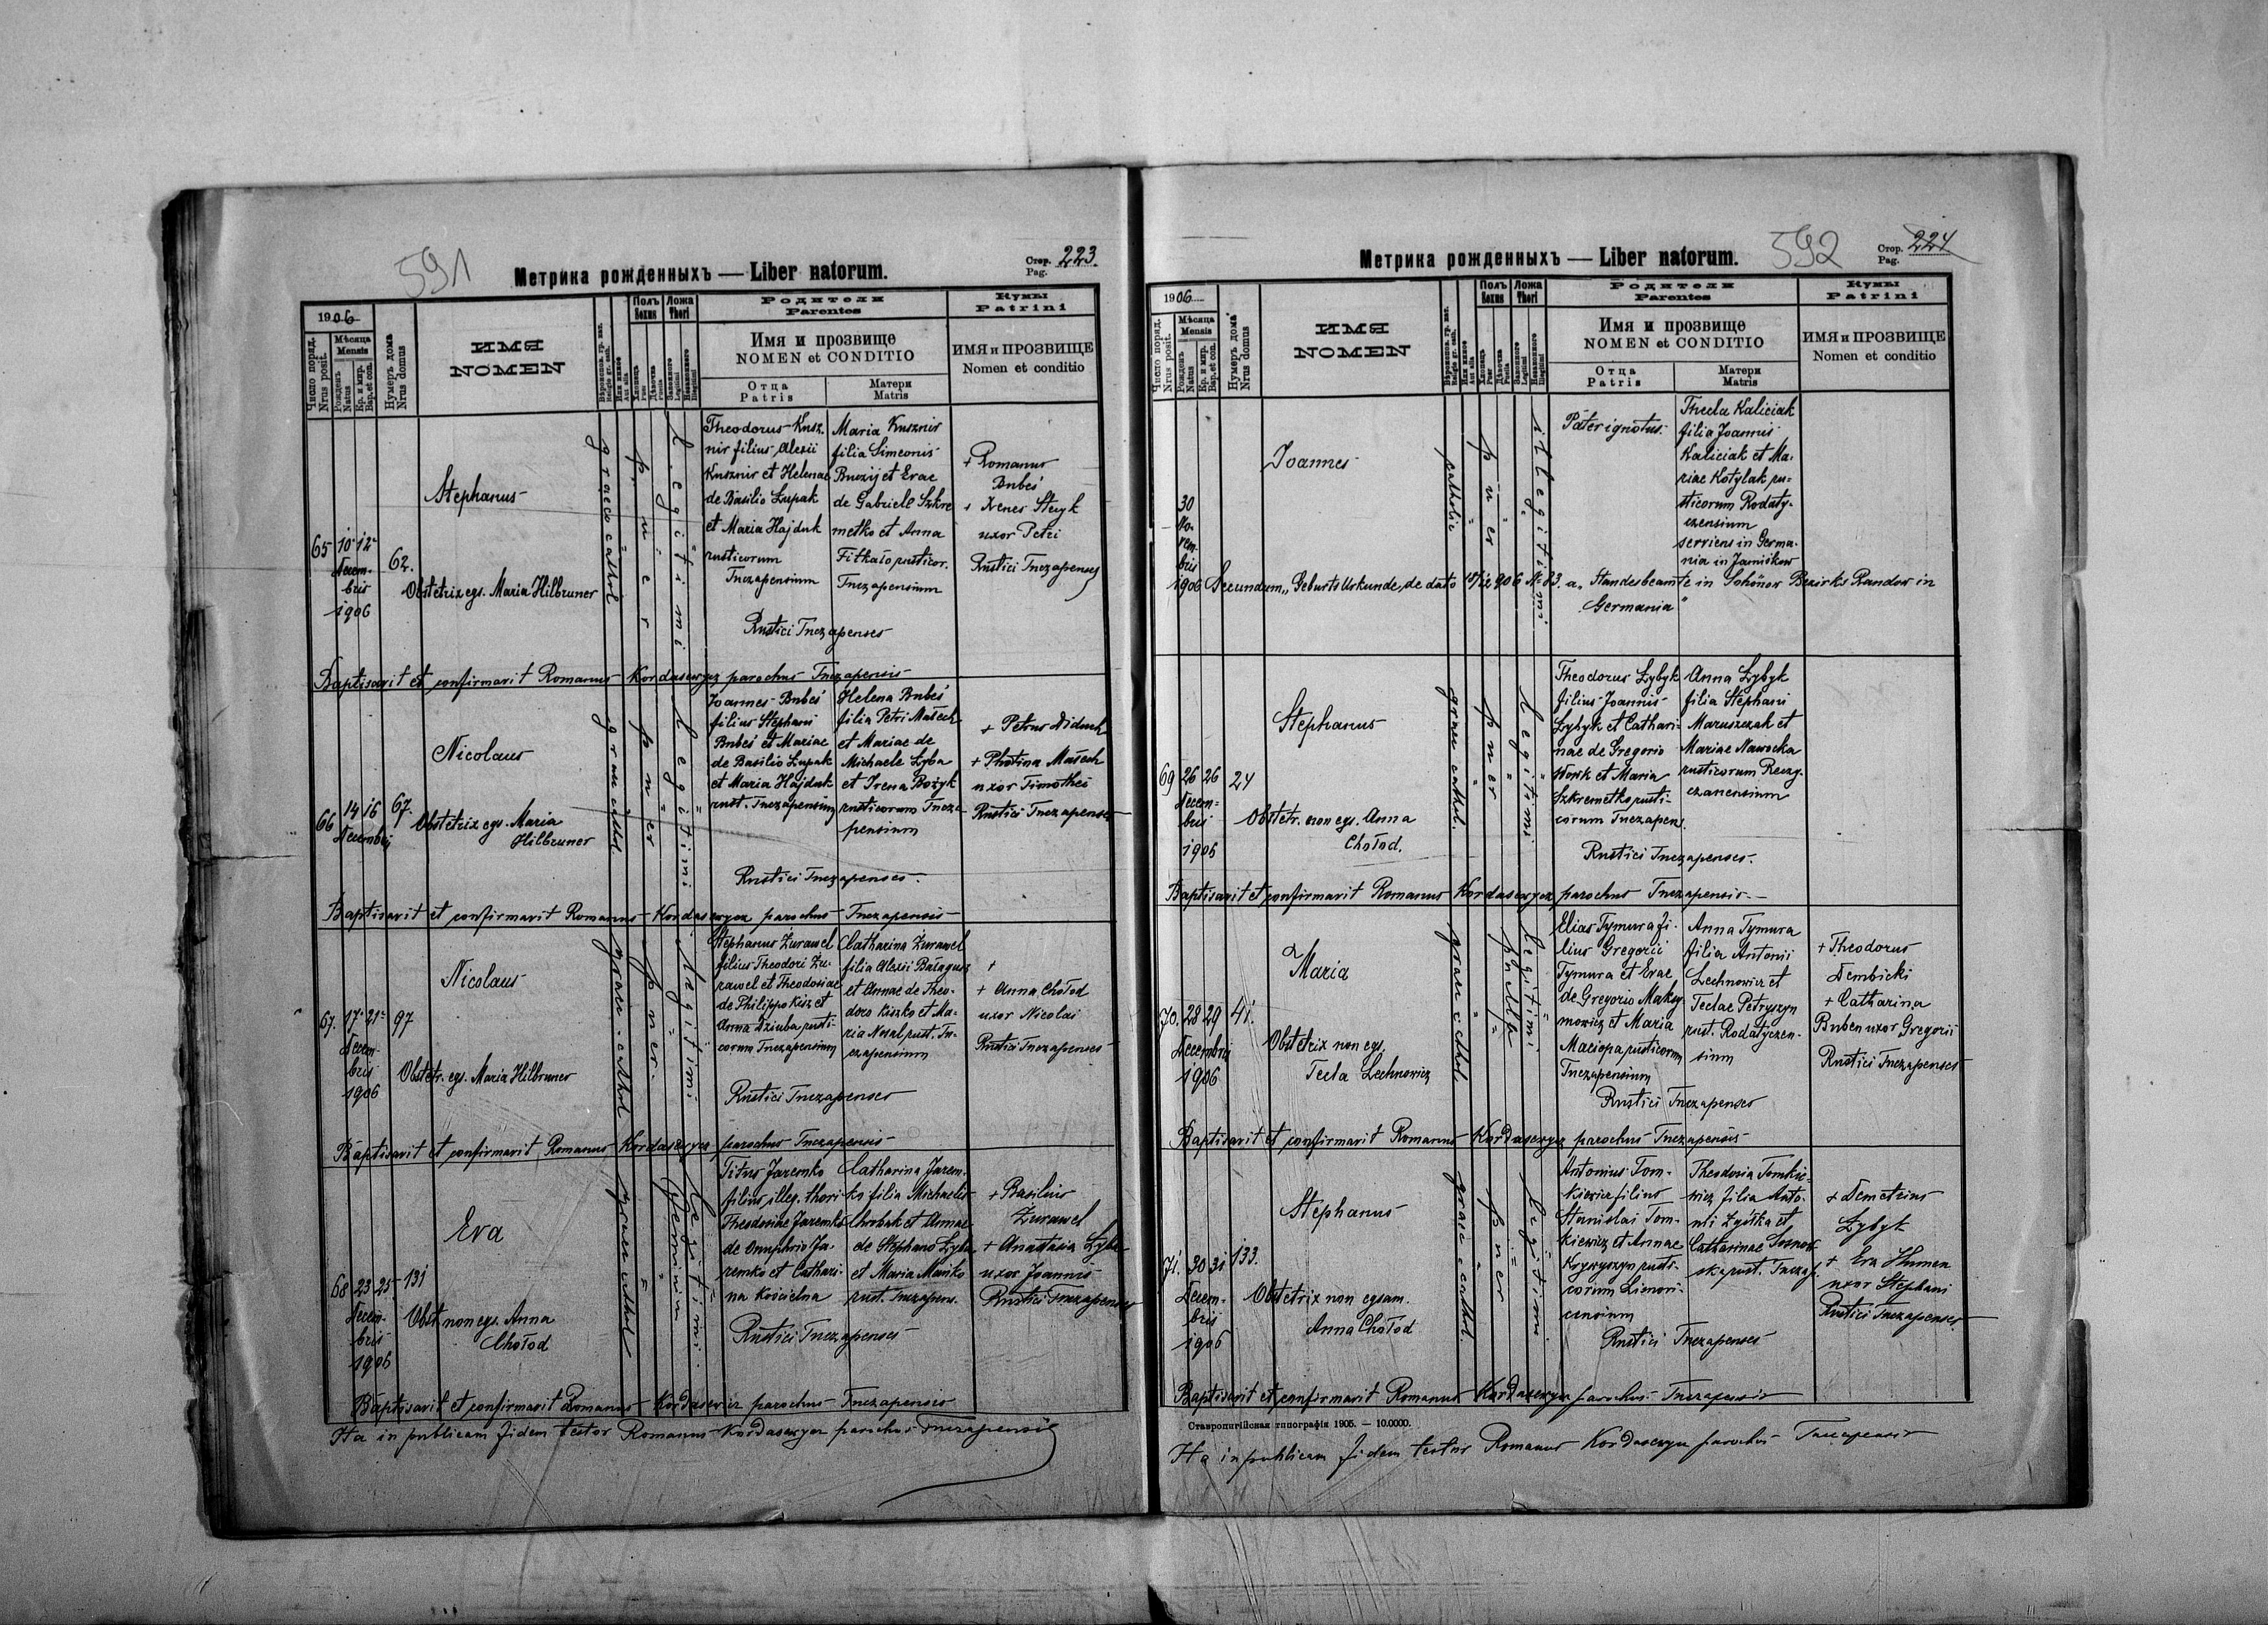 591
Метрика рожденныхъ — Liber natorum.
Стор. 223.
Pag.
1906
Число поряд.
Nrus posit.
Мѣсяца
Mensis
Рожденъ
Natus
Кр. и мир.
Bap. et con.
Нумеръ дома
Nrus domus
ИМЯ
NOMEN
Вѣроиспов. гр. кат.
Religio gr. cath.
Или иное
Aut alia
Полъ
Sexus
Хлопецъ
Puer
Дѣвочка
Puella
Ложа
Thori
Законного
Legitimi
Незаконного
Illegitimi
Родители
Parentes
Имя и прозвище
NOMEN et CONDITIO
Отца
Patris
Матери
Matris
Кумы
Patrini
ИМЯ и ПРОЗВИЩЕ
Nomen et conditio
65
10 12
Decem-
bris
1906
62.
Stephanus
Obstetrix egs. Maria Hilbruner
graeco cathol
puer
Legitimi
Theodorus Kusz-
nir filius Alexii
Kusznir et Helenae
de Basilio Łupak
et Maria Hajduk
rusticorum
Tuczapensium
Maria Kusznir
filia Simeonis
Bruzij et Evae
de Gabriele Szkre
metko et Anna
Fitkało rusticor.
Tuczapensium
Rustici Tuczapenses
+ Romanus
Bubeś
+ Xenes Stryk
uxor Petri
Rustici Tuczapenses
Baptisavit et confirmavit Romanus Kordasewycz parochus Tuczapensis
66
14 16
Decembris
67.
Nicolaus
Obstetrix egs. Maria
Hilbruner
graeci cathol.
puer
Legitimi
Joannes Bubeś
filius Stephani
Bubeś et Mariae
de Basilio Łupak
et Maria Hajduk
rust. Tuczapensium
Helena Bubeś
filia Petri Masech
et Mariae de
Michaele Łyba
et Irena Bożyk
rusticorum Tucza-
pensium
Rustici Tuczapenses.
+ Petrus Diduch
+ Photina Masech
uxor Timothei
Rustici Tuczapenses
Baptisavit et confirmavit Romanus Kordasewycz parochus Tuczapensis
67.
17 21
Decem-
bris
1906
97
Nicolaus
Obstetr. egs. Maria Hilbruner
graeci cathol
puer.
Legitimi
Stephanus Żurawel
filius Theodori Żu-
rawel et Theodosiae
de Philippo Kisz et
Anna Dziuba rusti-
corum Tuczapensium
Catharina Żurawel
filia Alexii Bałagusz
et Annae de Theo-
doro Kiszko et Ma-
ria Nosal rust. Tu-
czapensium
Rustici Tuczapenses
+
+ Anna Chołod
uxor Nicolai
Rustici Tuczapenses
Baptisavit et confirmavit Romanus Kordasewycz parochus Tuczapensis
68
23 25
Decem-
bris
1906
131
Eva
Obst. non egs. Anna
Chołod
graeci cathol
feminin
Legitimi.
Titus Jaremko
filius illeg. thori
Theodosiae Jaremko
de Onuphrio Ja-
remko et Cathari-
na Kościelna
Catharina Jarem-
ko filia Michaelis
Chrobak et Annae
de Stephano Łyba
et Maria Mańko
rust. Tuczapens.
Rustici Tuczapenses
+ Basilius
Żurawel
+ Anastasia Łyba
uxor Joannis
Rustici Tuczapenses
Baptisavit et confirmavit Romanus Kordasewicz parochus Tuczapensis
Ita in publicam fidem testor Romanus Kordasewycz parochus Tuczapensis
592
Метрика рожденныхъ — Liber natorum.
Стор. 224
Pag.
1906
Число поряд.
Nrus posit.
Мѣсяца
Mensis
Рожденъ
Natus
Кр. и мир.
Bap. et con.
Нумеръ дома
Nrus domus
ИМЯ
NOMEN
Вѣроиспов. гр. кат.
Religio gr. cath.
Или иное
Aut alia
Полъ
Sexus
Хлопецъ
Puer
Дѣвочка
Puella
Ложа
Thori
Законного
Legitimi
Незаконного
Illegitimi
Родители
Parentes
Имя и прозвище
NOMEN et CONDITIO
Отца
Patris
Матери
Matris
Кумы
Patrini
ИМЯ и ПРОЗВИЩЕ
Nomen et conditio
30
No-
vem-
bris
1906
Joannes
catholic
puer
illegitimi
Pater ignotus.
Thecla Kaliciak
filia Joannis
Kaliciak et Ma-
riae Kotylak ru-
sticorum Rodaty-
czensium
serviens in Germa-
nia in Jamikow
Secundum „Geburts Urkunde, de dato 15/12 906 N. 83. a „Standesbeamte in Schönow Bezirks Randow in
Germania"
69
26 26
Decem-
bris
1906
24
Stephanus
Obstetr. non egs. Anna
Chołod.
graeci cathol.
puer
Legitimi
Theodorus Łybyk
filius Joannis
Łybyk et Cathari-
nae de Gregorio
Wowk et Maria
Szkremetko rusti-
corum Tuczapens.
Anna Łybyk
filia Stephani
Maruszczak et
Mariae Nawocka
rusticorum Reczy-
czanensium
Rustici Tuczapenses.
Baptisavit et confirmavit Romanus Kordasewycz parochus Tuczapensis
70.
28 29
Decembris
1906
41.
Maria
Obstetrix non egs.
Tecla Lechnowicz
graeci cathol.
puella
Legitimi
Elias Tymura fi-
lius Gregorii
Tymura et Evae
de Gregorio Maksy
mowicz et Maria
Maciopa rusticorum
Tuczapensium
Anna Tymura
filia Antonii
Lechnowicz et
Teclae Petryszyn
rust. Rodatyczen-
sium
Rustici Tuczapenses
+ Theodorus
Dembicki
+ Catharina
Buben uxor Gregorii
Rustici Tuczapenses
Baptisavit et confirmavit Romanus Kordasewycz parochus Tuczapensis
71.
30 31
Decem-
bris
1906
133.
Stephanus
Obstetrix non egsam.
Anna Chołod
graeci cathol.
puer
Legitimi
Antonius Tom-
kiewicz filius
Stanislai Tom-
kiewicz et Annae
Krywyszyn rusti-
corum
Theodosia Tomkie-
wicz filia Anto-
nii Zyśka et
Catharinae Sosnow-
ska rust. Tuczap.
Rustici Tuczapenses
+ Demetrius
Łybyk
+ Eva Humen
uxor Stephani
Rustici Tuczapenses
Baptisavit et confirmavit Romanus Kordasewycz parochus Tuczapensis
Ставропигійская типографія 1905. — 10.0000.
Ita in publicam fidem testor Romanus Kordasewycz parochus Tuczapensis